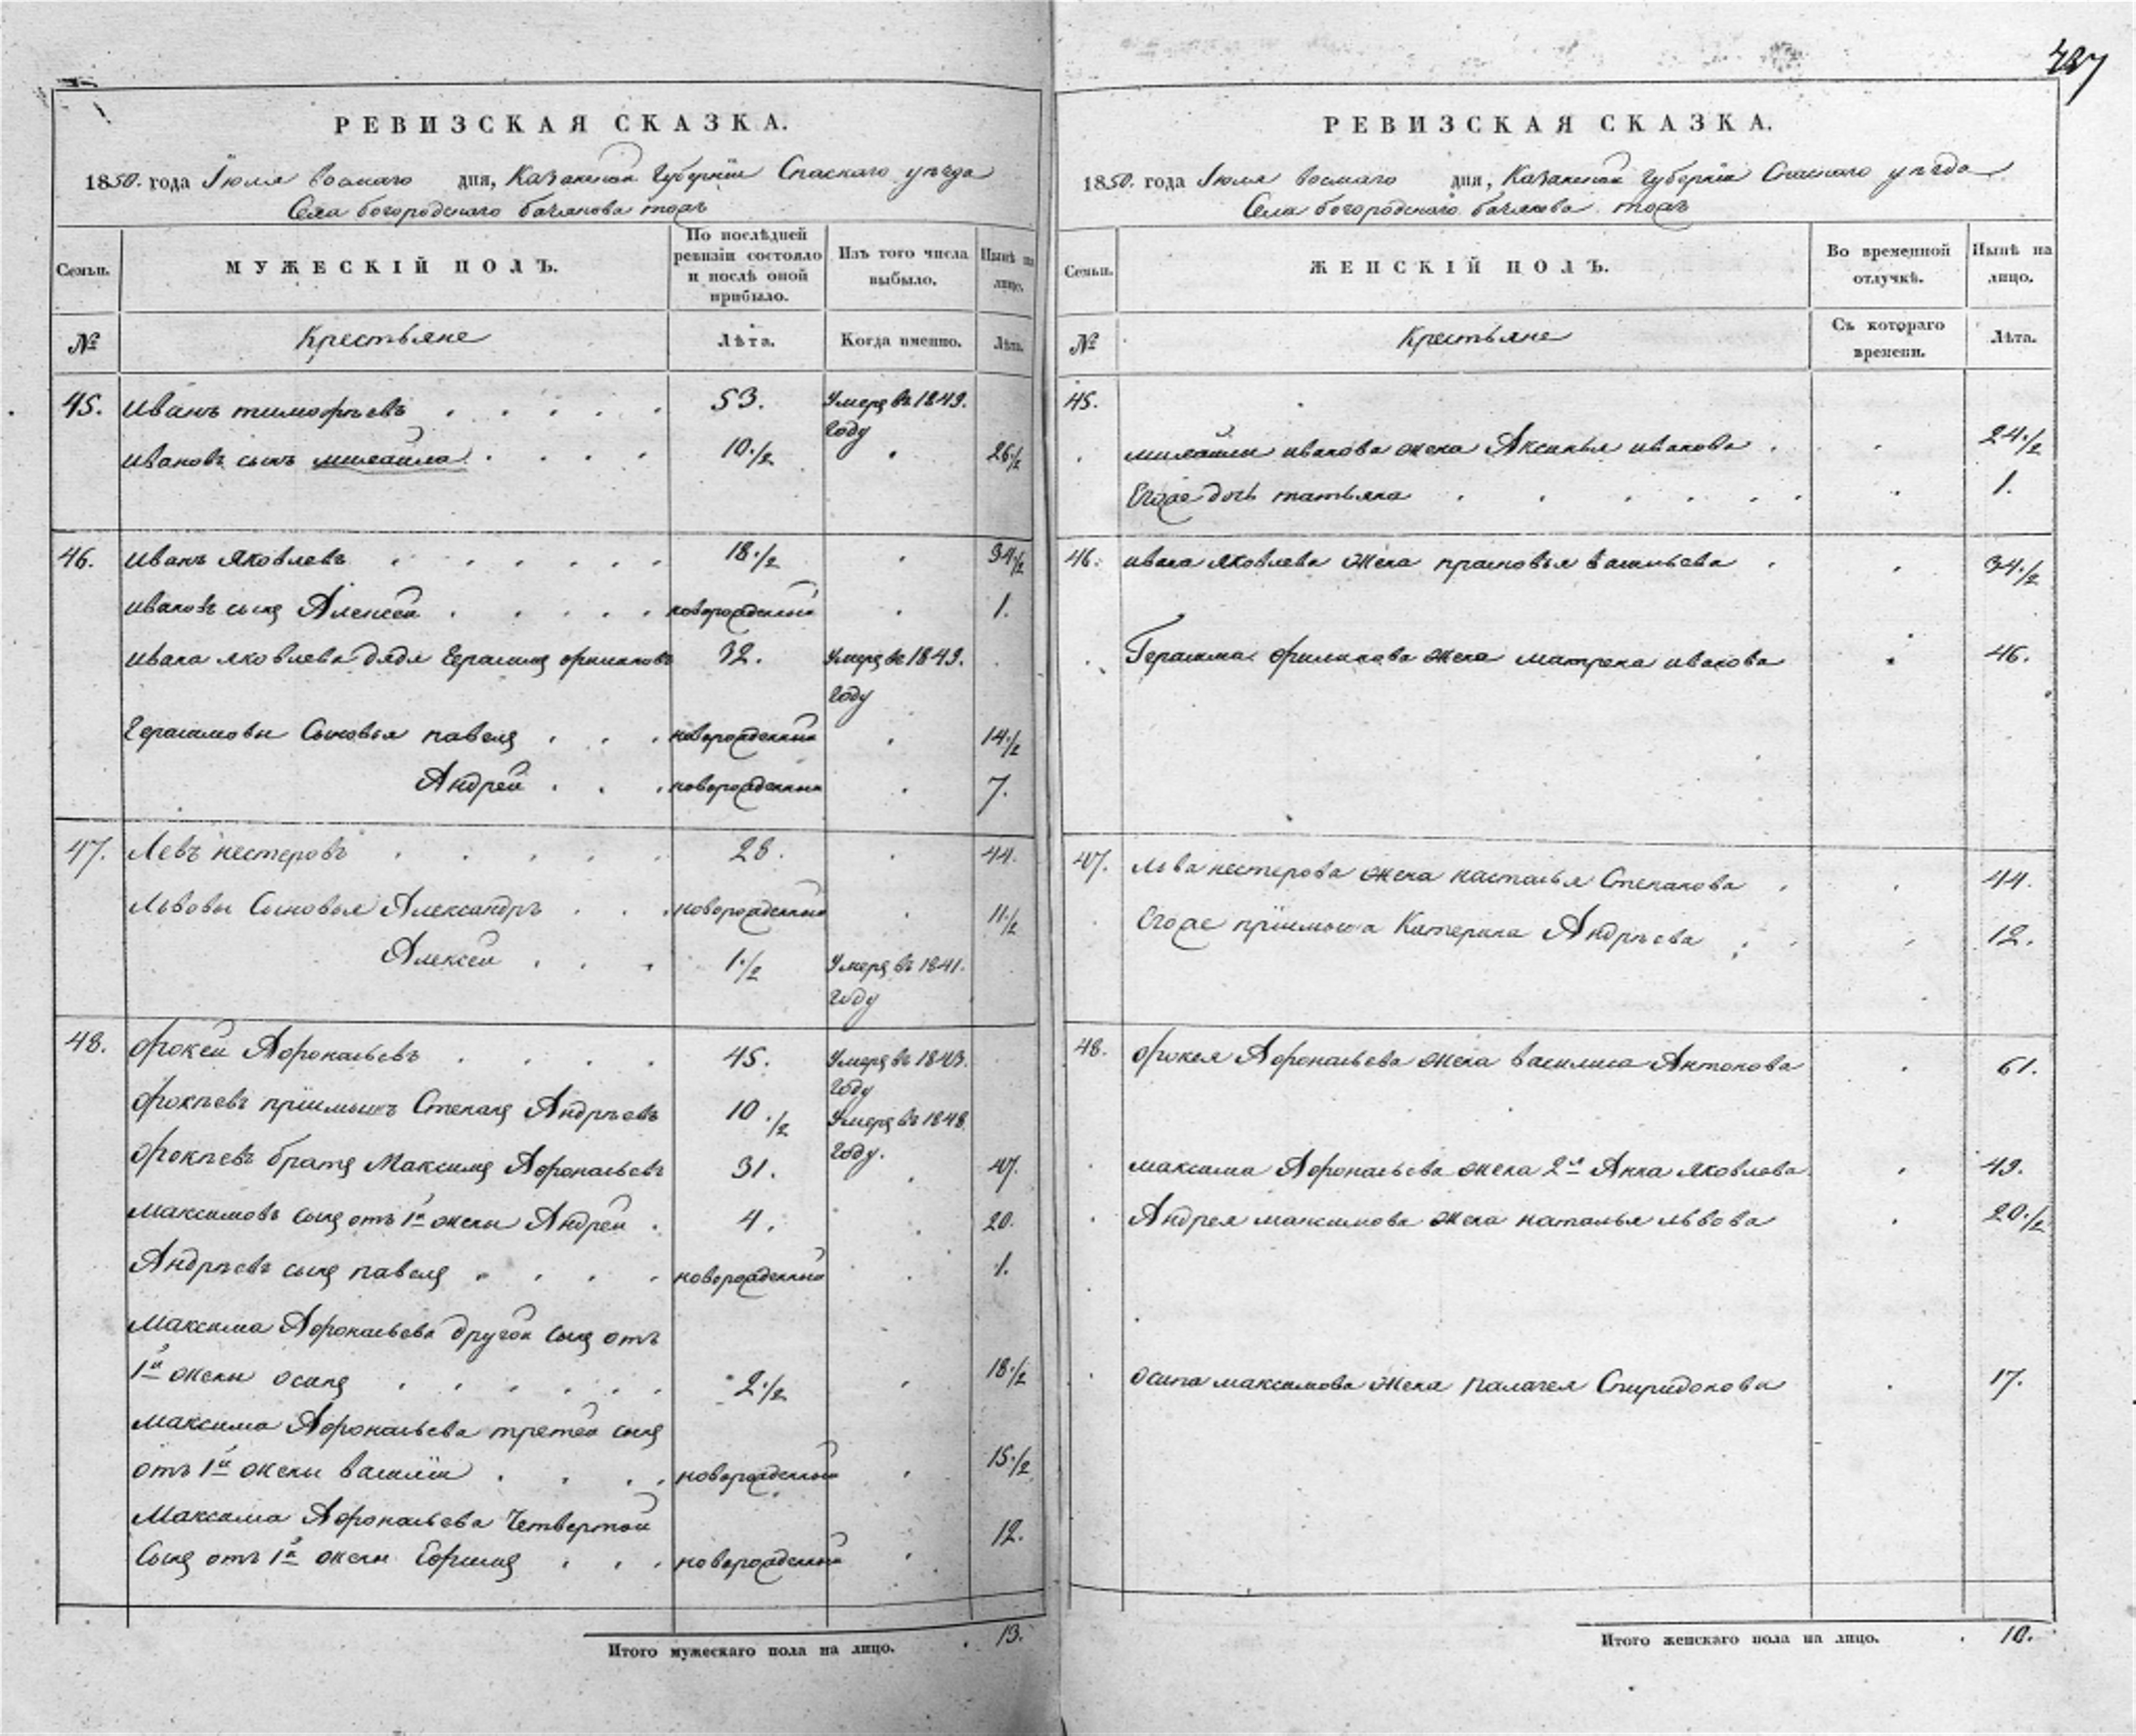 427
РЕВИЗСКАЯ СКАЗКА.
1850. года Іюля восмаго дня, Казанской Губерніи Спаскаго уѣзда
Села богородскаго тожъ
Семьи.
МУЖЕСКІЙ ПОЛЪ.
По послѣдней ревизіи состояло и послѣ оной прибыло.
Изъ того числа выбыло.
Нынѣ на лицо.
№
Крестьяне
Лѣта.
Когда именно.
Лѣта.
45. иванъ тимофѣевъ 53. Умеръ въ 1849. году
ивановъ сынъ михайла 10.½ 26½
46. иванъ яковлевъ 18.½ 34½
ивановъ сынъ Алексей новорожденный 1.
ивана яковлева дядя Герасимъ филиповъ 32. Умеръ въ 1849. году
Герасимовы Сыновья павелъ новорожденный 14.½
Андрей новорожденный 7.
47. Левъ нестеровъ 28. 44.
Львовы Сыновья Александръ новорожденный 11.½
Алексей 1.½ Умеръ въ 1841. году
48. фокей Афонасьевъ 45. Умеръ въ 1843. году
фокѣевъ пріимышъ Степанъ Андрѣевъ 10.½ Умеръ въ 1848. году.
фокѣевъ братъ Максимъ Афонасьевъ 31. 47.
максимовъ сынъ отъ 1й жены Андрей 4. 20.
Андрѣевъ сынъ павелъ новорожденный 1.
максима Афонасьева другой сынъ отъ
1й жены осипъ 2.½ 18.½
максима Афонасьева третей сынъ
отъ 1й жены василій новорожденный 15.½
Максима Афонасьева Четвертой
Сынъ отъ 1й жены Ефимъ новорожденный 12.
Итого мужескаго пола на лицо. 13.
РЕВИЗСКАЯ СКАЗКА.
1850. года Іюля восмаго дня, Казанской губерніи Спаскаго уѣзда
Села богородскаго тожъ
Семьи.
ЖЕНСКІЙ ПОЛЪ.
Во временной отлучкѣ.
Нынѣ на лицо.
№
Крестьяне
Съ котораго времени.
Лѣта.
45.
михайлы иванова жена Аксинья иванова 24.½
Егоже дочь татьяна 1.
46. ивана яковлева жена прасковья васильева 34.½
Герасима филипова жена матрена иванова 46.
47. льва нестерова жена настасья Степанова 44.
Егоже пріимыша Катерина Андрѣева 12.
48. фокея Афонасьева жена василиса Антонова 61.
максима Афонасьева жена 2я Анна яковлева 49.
Андрея максимова жена наталья львова 20.½
осипа максимова жена палагея Спиридонова 17.
Итого женскаго пола на лицо. 10.